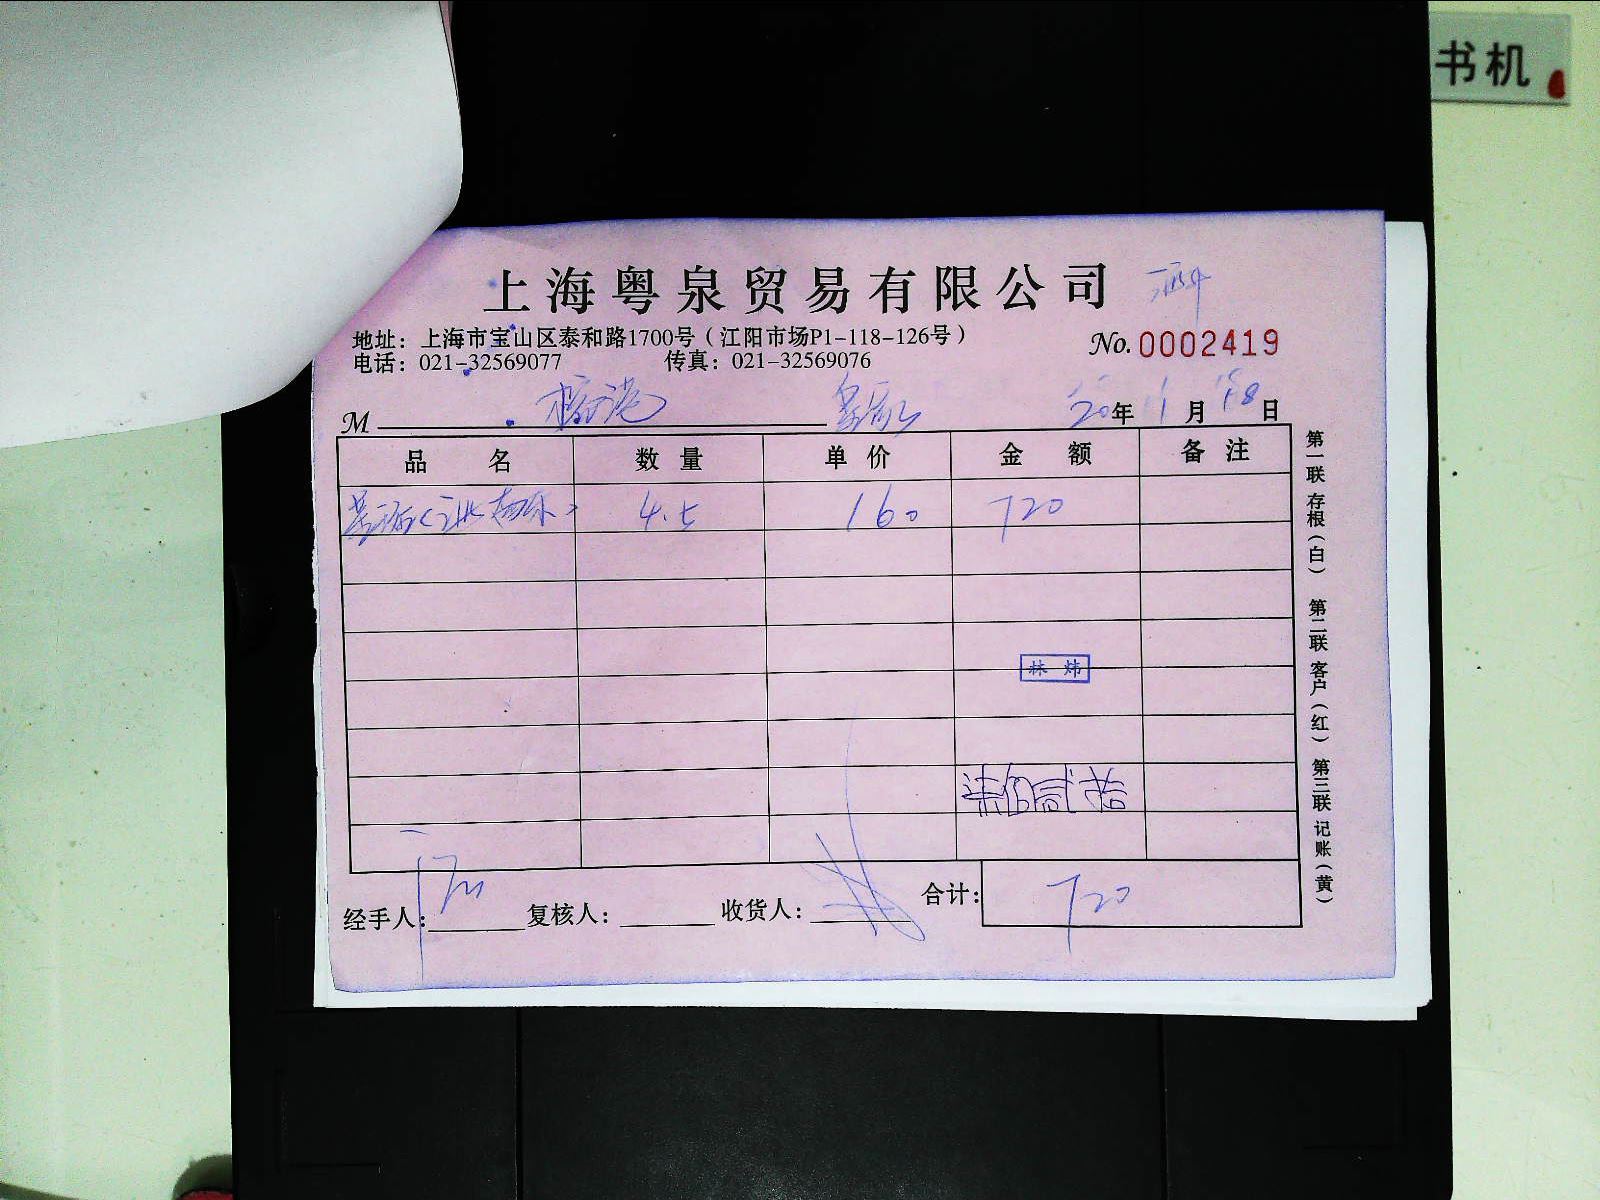 书机
上海粤泉贸易有限公司
地址：上海市宝山区泰和路1700号（江阳市场P1-118-126号）
电话：021-32569077 传真：021-32569076
No.0002419
M 20年 11月 18日
品名 数量 单价 金额 备注
4.5 160 720
林炜
柒佰贰拾
经手人： 复核人： 收货人： 合计：720
第一联 存根（白） 第二联 客户（红） 第三联 记账（黄）